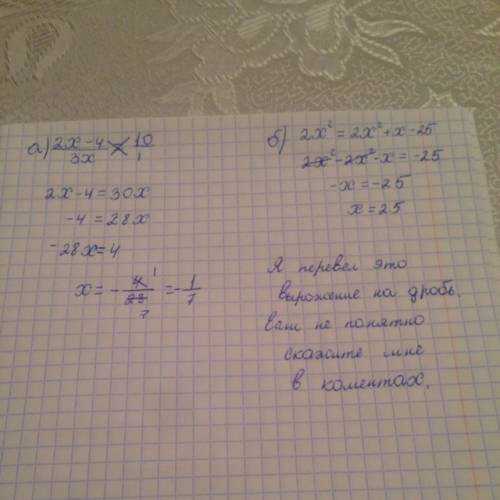 а) (2x-4)/3x = 10/1
2x-4=30x
-4=28x
-28x=4
x= -4/28 = -1/7
1
7
б) 2x² = 2x² + x - 25
2x² - 2x² - x = -25
-x = -25
x = 25
Я перевел это
вырожение на дробь.
Если не понятно
скажите мне
в коментах.